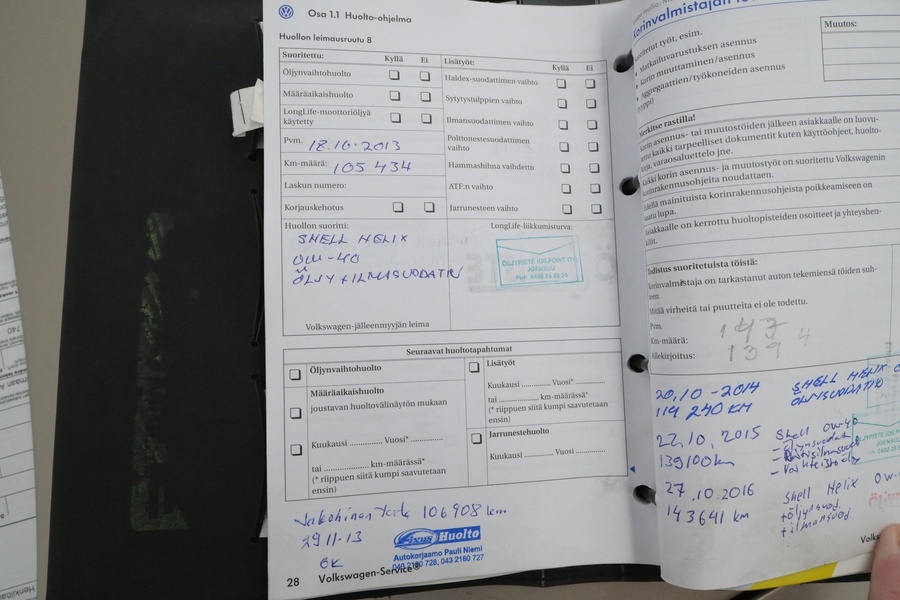 Osa 1.1 Huolto-ohjelma
Huollon leimausruutu 8
Suoritettu: Kyllä Ei
Öljynvaihtohuolto
Määräaikaishuolto
LongLife-moottoriöljyä
käytetty
Pvm. 18.10.2013
Km-määrä: 105 434
Laskun numero:
Korjauskehotus
Lisätyöt: Kyllä Ei
Haldex-suodattimen vaihto
Sytytystulppien vaihto
Ilmansuodattimen vaihto
Polttonestesuodattimen
vaihto
Hammashihna vaihdettu
ATF:n vaihto
Jarrunesteen vaihto
Huollon suoritti:
SHELL HELIX
0W-40
ÖLJY + ILMASUODATIN
Volkswagen-jälleenmyyjän leima
LongLife-liikkumisturva:
ÖLJYPISTE OILPOINT OY
JOENSUU
Seuraavat huoltotapahtumat
Öljynvaihtohuolto
Määräaikaishuolto
joustavan huoltovälinäytön mukaan
Kuukausi ............ Vuosi* ............
tai .................... km-määrässä*
(* riippuen siitä kumpi saavutetaan
ensin)
Lisätyöt
Kuukausi ............ Vuosi* ............
tai .................... km-määrässä*
(* riippuen siitä kumpi saavutetaan
ensin)
Jarrunestehuolto
Kuukausi ............ Vuosi ............
106908 km
29 11-13
OK
Fixus Huolto
Autokorjaamo Pauli Niemi
043 2180 727
28 Volkswagen-Service®
Korinvalmistajan
työt, esim.
Matkailuvarustuksen asennus
Korin muuttaminen/asennus
Aggregaattien/työkoneiden asennus
Muutos:
Merkitse rastilla!
Korin asennus- tai muutostöiden jälkeen asiakkaalle on luovu-
kaikki tarpeelliset dokumentit kuten käyttöohjeet, huolto-
varaosaluettelo jne.
Kaikki korin asennus- ja muutostyöt on suoritettu Volkswagenin
korinrakennusohjeita noudattaen.
mainituista korinrakennusohjeista poikkeamiseen on
lupa.
Asiakkaalle on kerrottu huoltopisteiden osoitteet ja yhteyshen-
Todistus suoritetuista töistä:
Korinvalmistaja on tarkastanut auton tekemiensä töiden suh-
teen.
Mitään virheitä tai puutteita ei ole todettu.
Pvm.
Km-määrä: 147
Allekirjoitus: 139 4
20.10-2014 SHELL HELIX
119 240 KM ÖLJYSUODATIN
22.10.2015 Shell 0W-40
139100km
27.10.2016 Shell Helix 0W-
143641 km +öljynsuod
+ilmansuod